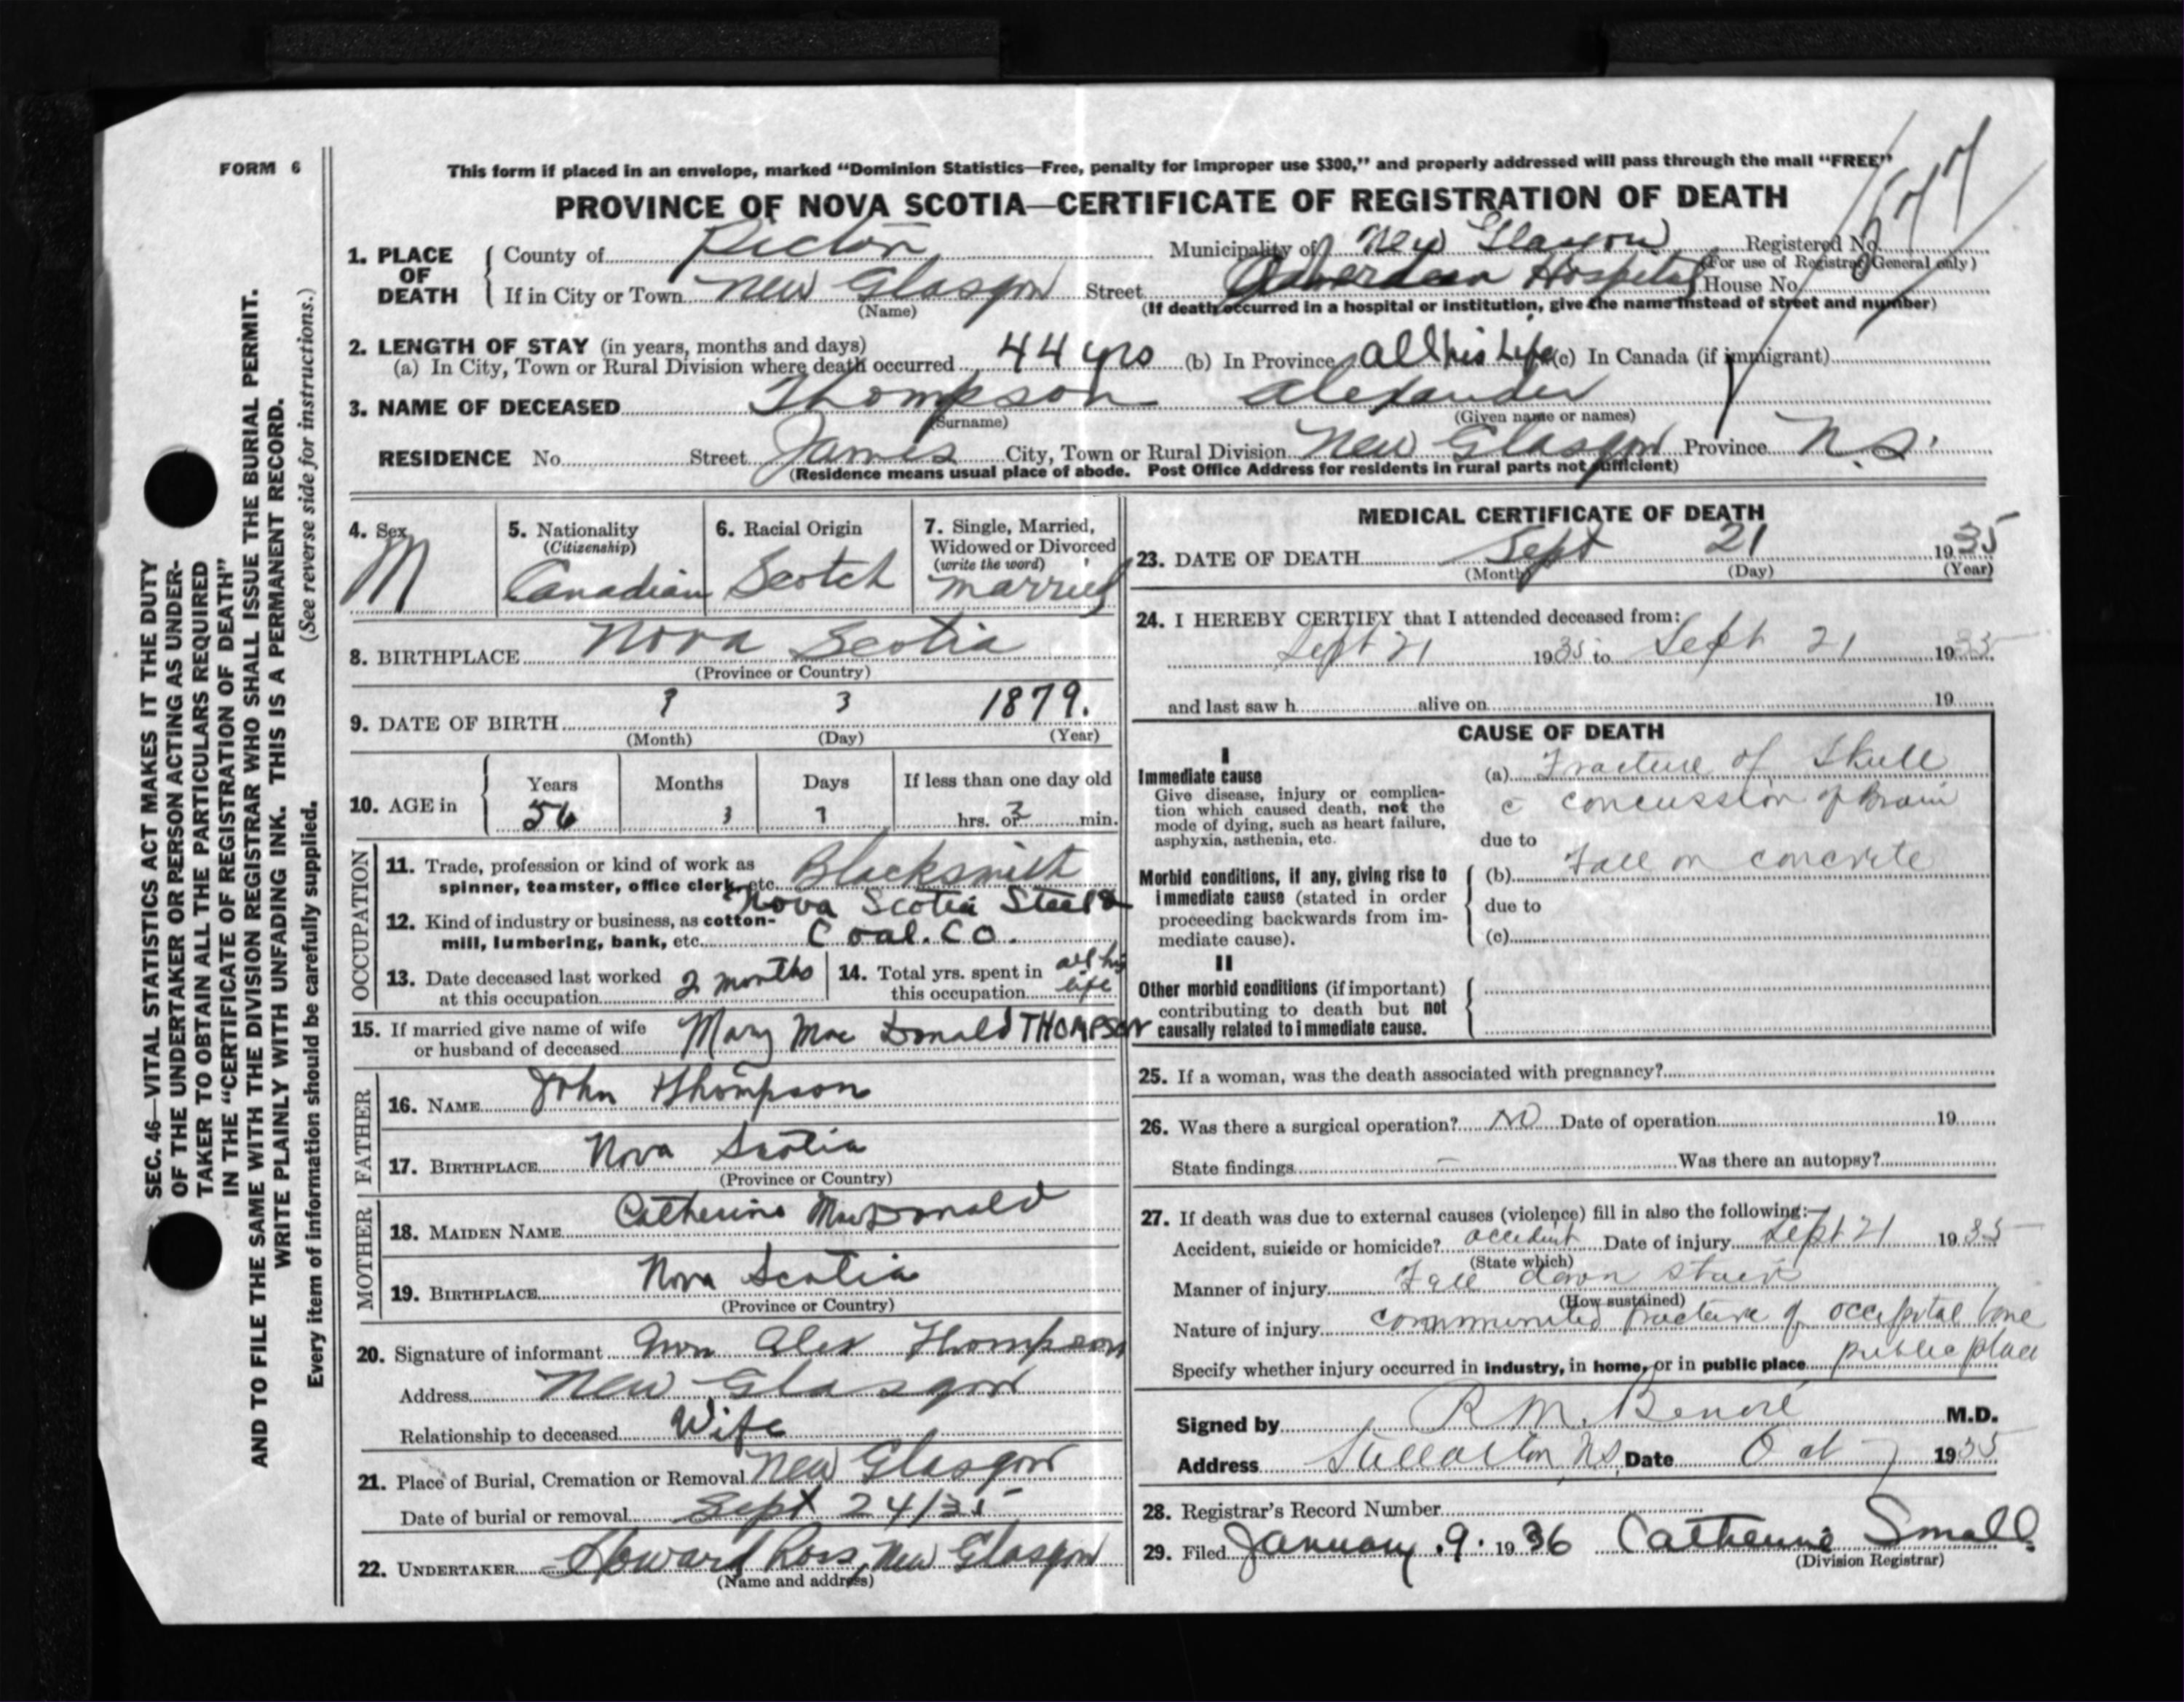 FORM 6
This form if placed in an envelope, marked “Dominion Statistics—Free, penalty for improper use $300,” and properly addressed will pass through the mail “FREE”
PROVINCE OF NOVA SCOTIA—CERTIFICATE OF REGISTRATION OF DEATH
1. PLACE OF DEATH County of Pictou Municipality of New Glasgow Registered No.
(For use of Registrar General only)
If in City or Town New Glasgow Street Aberdeen Hospital House No.
(Name) (If death occurred in a hospital or institution, give the name instead of street and number)
2. LENGTH OF STAY (in years, months and days)
(a) In City, Town or Rural Division where death occurred 44 yrs (b) In Province all his Life (c) In Canada (if immigrant)
3. NAME OF DECEASED Thompson Alexander
(Surname) (Given name or names)
RESIDENCE No. Street James City, Town or Rural Division New Glasgow Province N.S.
(Residence means usual place of abode. Post Office Address for residents in rural parts not sufficient)
4. Sex M
5. Nationality (Citizenship) Canadian
6. Racial Origin Scotch
7. Single, Married, Widowed or Divorced (write the word) married
8. BIRTHPLACE Nova Scotia
(Province or Country)
9. DATE OF BIRTH ? 3 1879.
(Month) (Day) (Year)
10. AGE in Years Months Days If less than one day old
56 hrs. or min.
OCCUPATION
11. Trade, profession or kind of work as spinner, teamster, office clerk, etc. Blacksmith
12. Kind of industry or business, as cotton-mill, lumbering, bank, etc. Nova Scotia Steel & Coal. Co.
13. Date deceased last worked at this occupation 2 months
14. Total yrs. spent in this occupation all his life
15. If married give name of wife or husband of deceased Mary Mac Donald THOMPSON
FATHER
16. NAME John Thompson
17. BIRTHPLACE Nova Scotia
(Province or Country)
MOTHER
18. MAIDEN NAME Catherine MacDonald
19. BIRTHPLACE Nova Scotia
(Province or Country)
20. Signature of informant Mrs Alex Thompson
Address New Glasgow
Relationship to deceased Wife
21. Place of Burial, Cremation or Removal New Glasgow
Date of burial or removal Sept 24/35
22. UNDERTAKER Howard Ross, New Glasgow
(Name and address)
MEDICAL CERTIFICATE OF DEATH
23. DATE OF DEATH Sept 21 1935
(Month) (Day) (Year)
24. I HEREBY CERTIFY that I attended deceased from:
Sept 21 1935 to Sept 21 1935
and last saw h alive on 19
CAUSE OF DEATH
I
Immediate cause
Give disease, injury or complication which caused death, not the mode of dying, such as heart failure, asphyxia, asthenia, etc.
(a) Fracture of Skull
c concussion of Brain
due to
Morbid conditions, if any, giving rise to immediate cause (stated in order proceeding backwards from immediate cause).
(b) Fall on concrete
due to
(c)
II
Other morbid conditions (if important) contributing to death but not causally related to immediate cause.
25. If a woman, was the death associated with pregnancy?
26. Was there a surgical operation? NO Date of operation 19
State findings — Was there an autopsy?
27. If death was due to external causes (violence) fill in also the following:—
Accident, suicide or homicide? accident Date of injury Sept 21 1935
(State which)
Manner of injury Fall down stairs
(How sustained)
Nature of injury communited fracture of occipital bone
Specify whether injury occurred in industry, in home, or in public place public place
Signed by R. M. Benvie M.D.
Address Stellarton, N.S. Date Oct 7 1935
28. Registrar’s Record Number
29. Filed January. 9. 1936 Catherine Small.
(Division Registrar)
SEC. 46—VITAL STATISTICS ACT MAKES IT THE DUTY
OF THE UNDERTAKER OR PERSON ACTING AS UNDER-
TAKER TO OBTAIN ALL THE PARTICULARS REQUIRED
IN THE “CERTIFICATE OF REGISTRATION OF DEATH”
AND TO FILE THE SAME WITH THE DIVISION REGISTRAR WHO SHALL ISSUE THE BURIAL PERMIT.
WRITE PLAINLY WITH UNFADING INK. THIS IS A PERMANENT RECORD.
Every item of information should be carefully supplied. (See reverse side for instructions.)